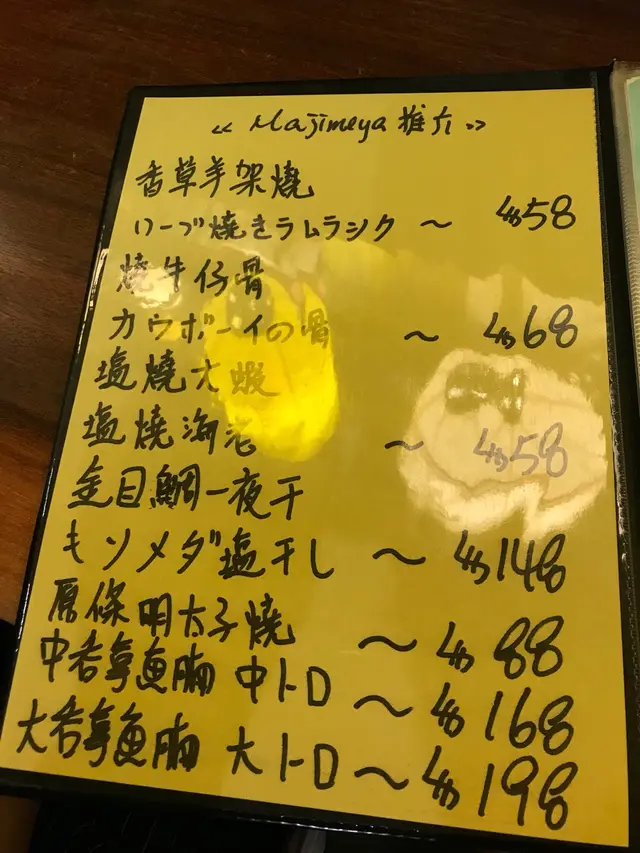 《 Majimeya 推介 》
香草羊架燒
ハーブ焼きラムラック 〜 $58
燒牛仔骨
カウボーイの骨 〜 $68
塩燒大蝦
塩焼海老 〜 $58
金目鯛一夜干
キンメダ塩干し 〜 $148
原條明太子燒 〜 $88
中吞拿魚腩 中トロ 〜 $168
大吞拿魚腩 大トロ 〜 $198